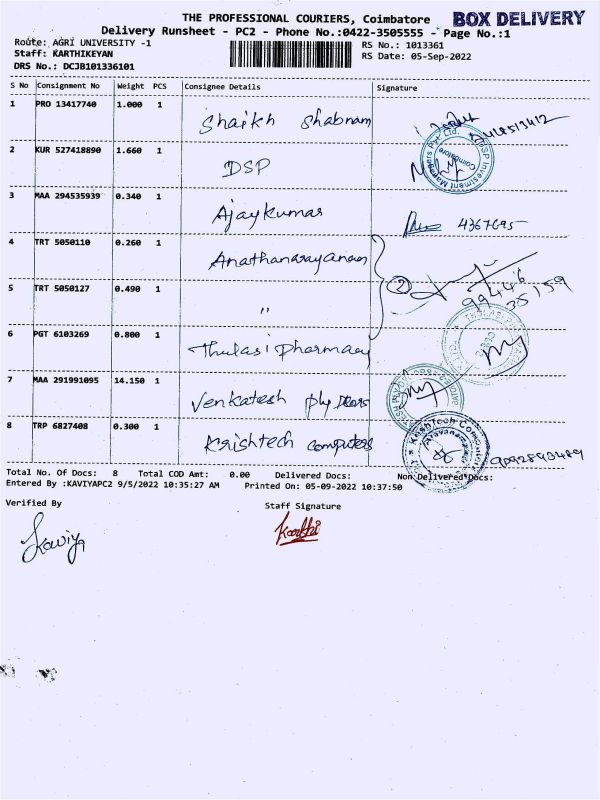 THE PROFESSIONAL COURIERS, Coimbatore BOX DELIVERY
Delivery Runsheet - PC2 - Phone No.:0422-3505555 - Page No.:1
Route: AGRI UNIVERSITY -1 RS No.: 1013361
Staff: KARTHIKEYAN RS Date: 05-Sep-2022
DRS No.: DCJB101336101
S No Consignment No Weight PCS Consignee Details Signature
1 PRO 13417740 1.000 1 Shaikh Shabnam
2 KUR 527418890 1.660 1 DSP
DSP Investment Managers Pvt. Ltd. Coimbatore
3 MAA 294535939 0.340 1 Ajaykumar 4367695
4 TRT 5050110 0.260 1 Anathanarayanan
5 TRT 5050127 0.490 1 " 2 99446 35159
6 PGT 6103269 0.800 1 Thulasi pharmacy
7 MAA 291991095 14.150 1 Venkatesh ply Doors
8 TRP 6827408 0.300 1 Krishtech computers 9092890489
Total No. Of Docs: 8 Total COD Amt: 0.00 Delivered Docs: Non Delivered Docs:
Entered By :KAVIYAPC2 9/5/2022 10:35:27 AM Printed On: 05-09-2022 10:37:50
Verified By Staff Signature
Kaviya Karthi